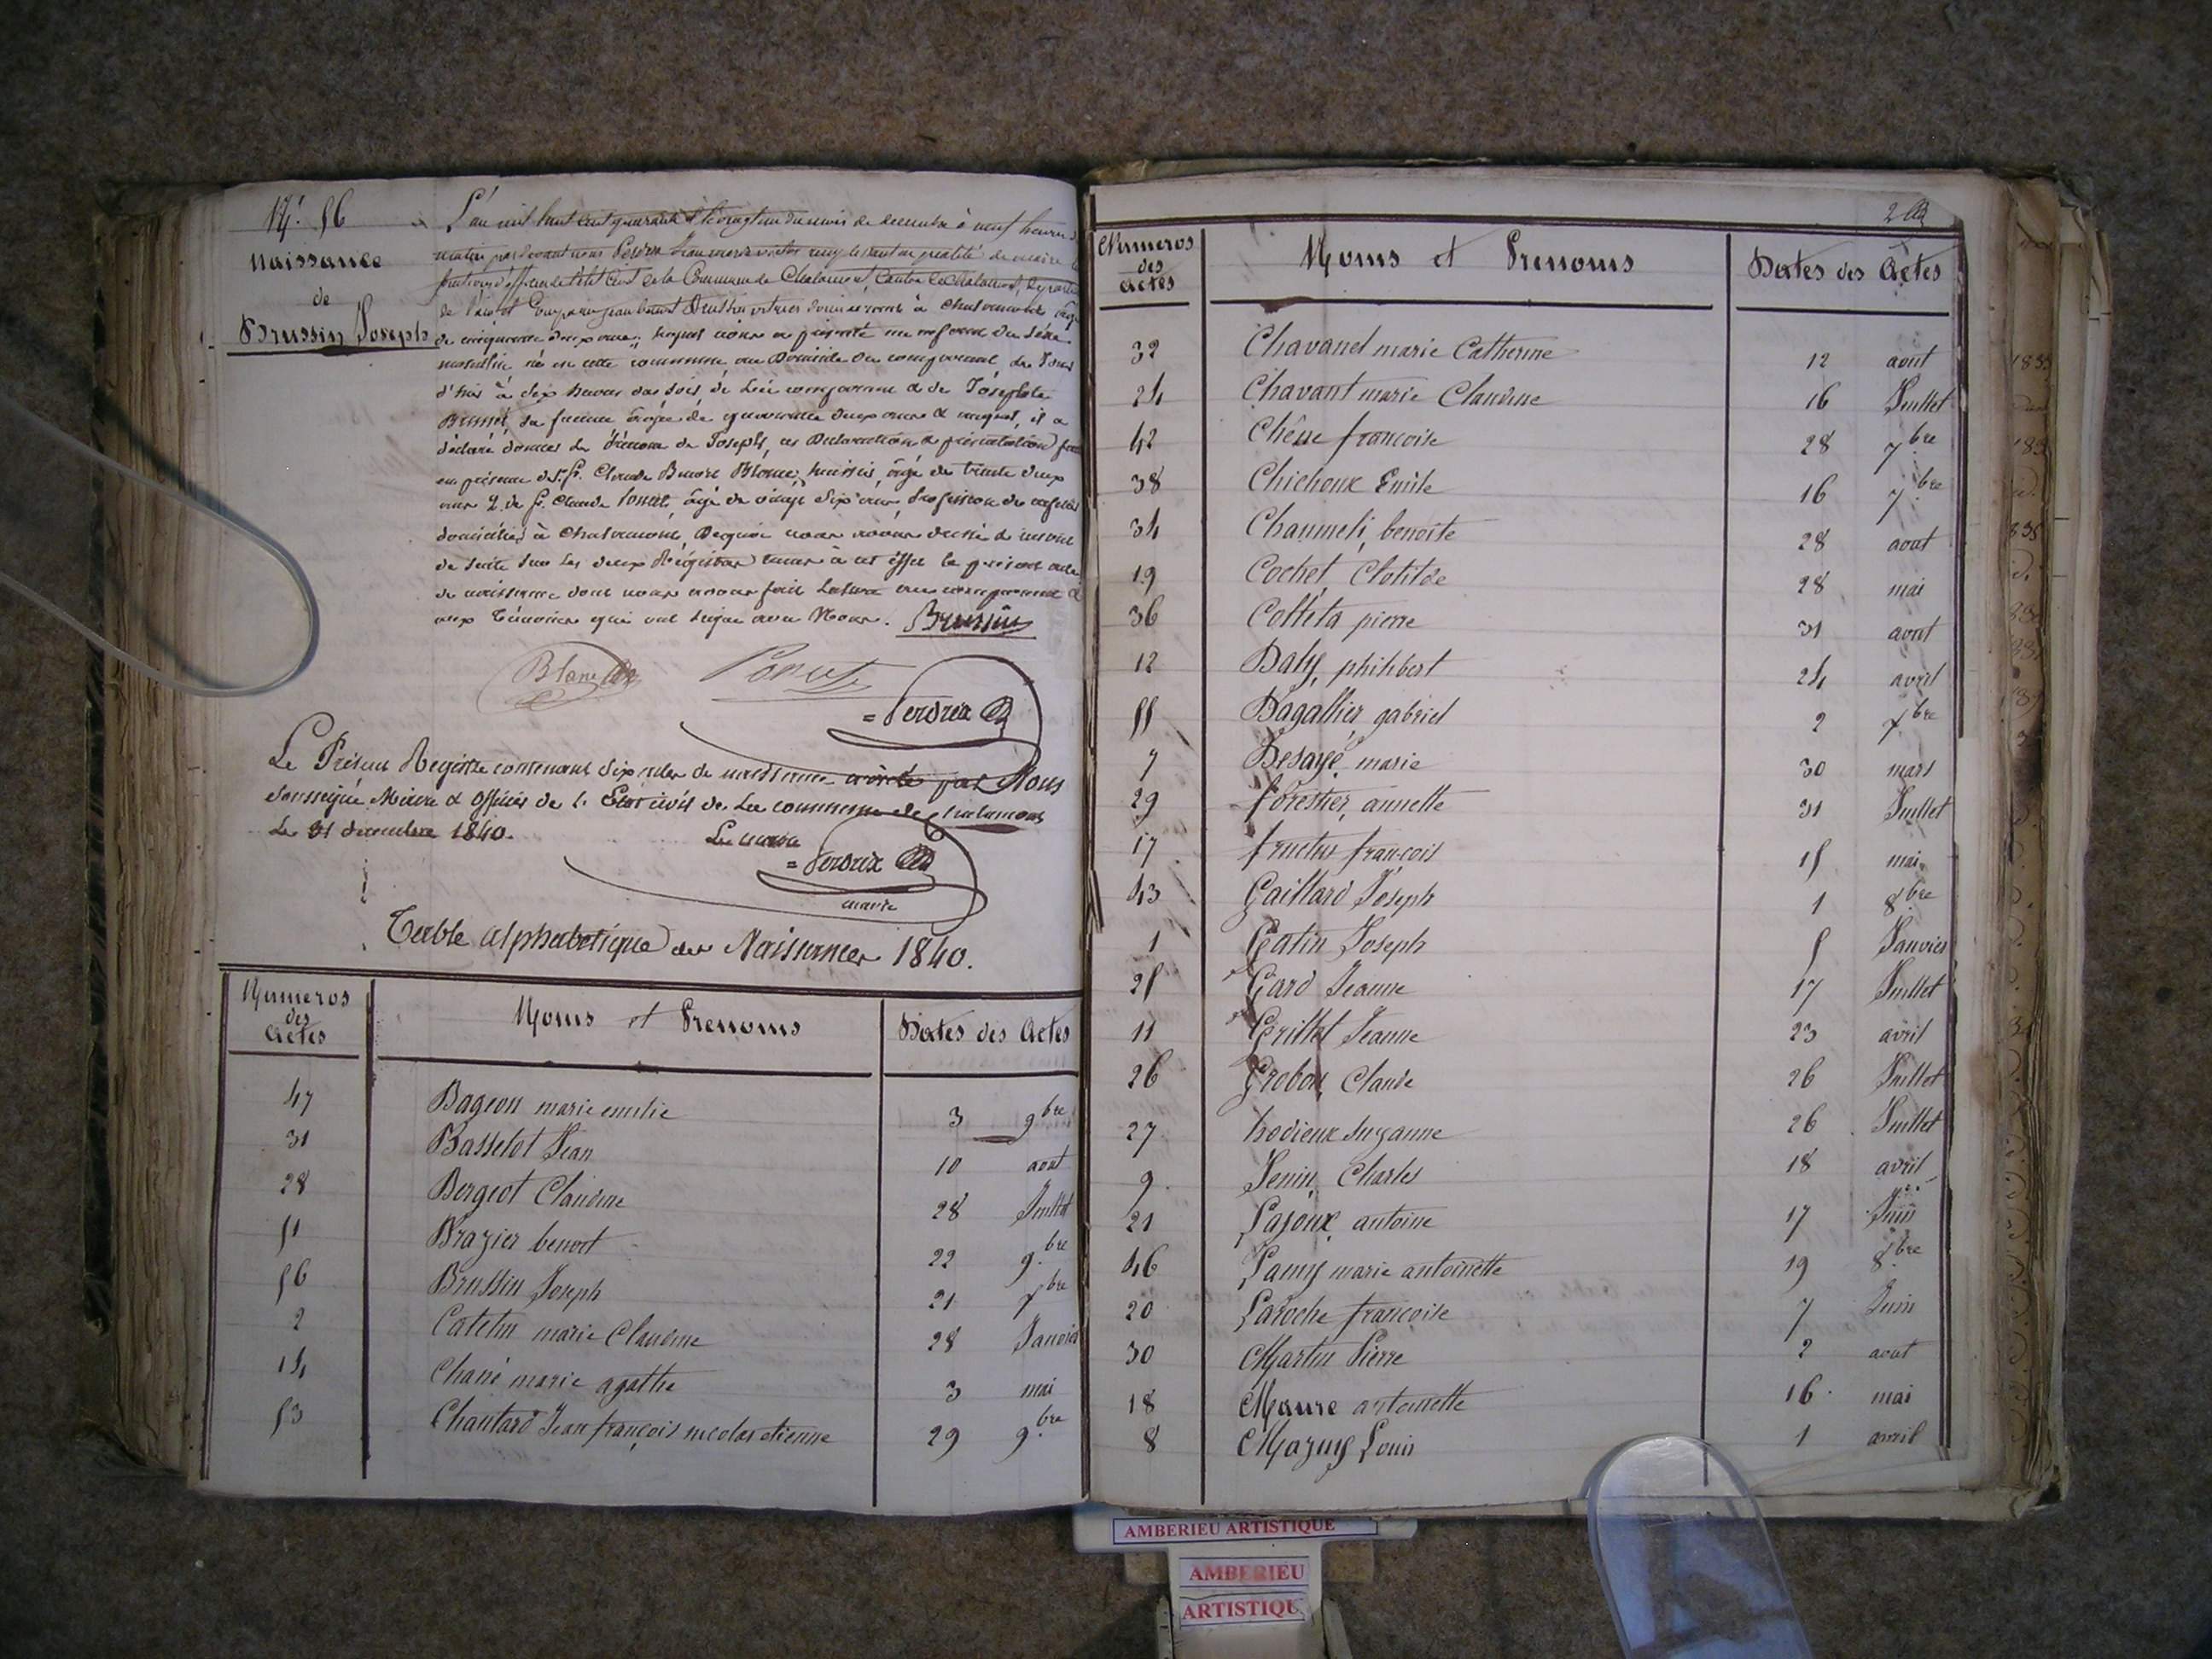 N.º 56
Naissance
de
Brussin Joseph
L'an mil huit cent quarante et le vingt un du mois de decembre à neuf heures du
matin par devant nous Perdrix Jean marie victor
de l'état Civil de la Commune de Chalamont, Canton de Chalamont, Departe
de l'ain est Comparu jean benoit Brussin vitrier domicilié à Chalamont âgé
de cinquante deux ans, lequel nous a présenté un enfant du sexe
masculin né en cette commune au Domicile du comparant, du Jour
d'hier à dix heures du soir, de lui comparant & de Josephte
Brunet, sa femme âgée de quarante deux ans & auquel, il a
déclaré donner le Prénom de Joseph, ces Déclaration & présentation
en présence de 1. Sr. Claude Blanc, huissier, âgé de trente deux
ans 2. de Sr. Claude Poncet, âgé de vingt six ans, profession de
domiciliés à Chalamont, Dequoi nous avons dressé & inscrit
de suite sur les deux Régistres tenus à cet éffet le présent acte
de naissance dont nous avons fait Lecture au comparant &
aux Témoins qui ont signé avec Nous. Brussin
Blanc Poncet
= Perdrix
Le Présent Registre contenant six actes de naissance arrêté par Nous
soussigné Maire & Officier de l'Etat civil de la commune de chalamont
Le 31 decembre 1840.
Le maire
= Perdrix
maire
Table alphabetique des Naissances 1840.
Numeros des Actes Noms et Prenoms Dates des Actes
47 Bageon marie emilie 3 9bre
31 Basselot Jean 10 aout
28 Bergeot Claudine 28 Juillet
51 Brazier benoit 22 9bre
56 Brussin Joseph 21 xbre
2 Catelin marie Claudine 28 Janvier
14 Chané marie agathe 3 mai
53 Chantard Jean françois nicolas etienne 29 9bre
Numeros des Actes Noms et Prenoms Dates des Actes
32 Chavanel marie Catherine 12 aout
24 Chavant marie Claudine 16 Juillet
42 Chêne françoise 28 7bre
38 Chichoux Emile 16 7bre
34 Chaumeli benoite 28 aout
19 Cochet Clotilde 28 mai
36 Colleta pierre 31 aout
12 Daly, philibert 24 avril
55 Dagallier, gabriel 2 xbre
7 Desayé marie 30 mars
29 forestier, annette 31 Juillet
17 fructus françois 15 mai
43 Gaillard Joseph 1 8bre
1 Gatin Joseph 5 Janvier
25 Gard Jeanne 17 Juillet
11 Grillet Jeanne 23 avril
26 Grobon Claude 26 Juillet
27 hodieux Suzanne 26 Juillet
9 Jenin Charles 18 avril
21 Lajoux antoine 17 Juin
46 Lamy marie antoinette 19 8bre
20 Laroche françoise 7 Juin
30 Martin Pierre 2 aout
18 Maure antoinette 16 mai
8 Mazuy Louis 1 avril
AMBERIEU ARTISTIQUE
AMBERIEU
ARTISTIQU